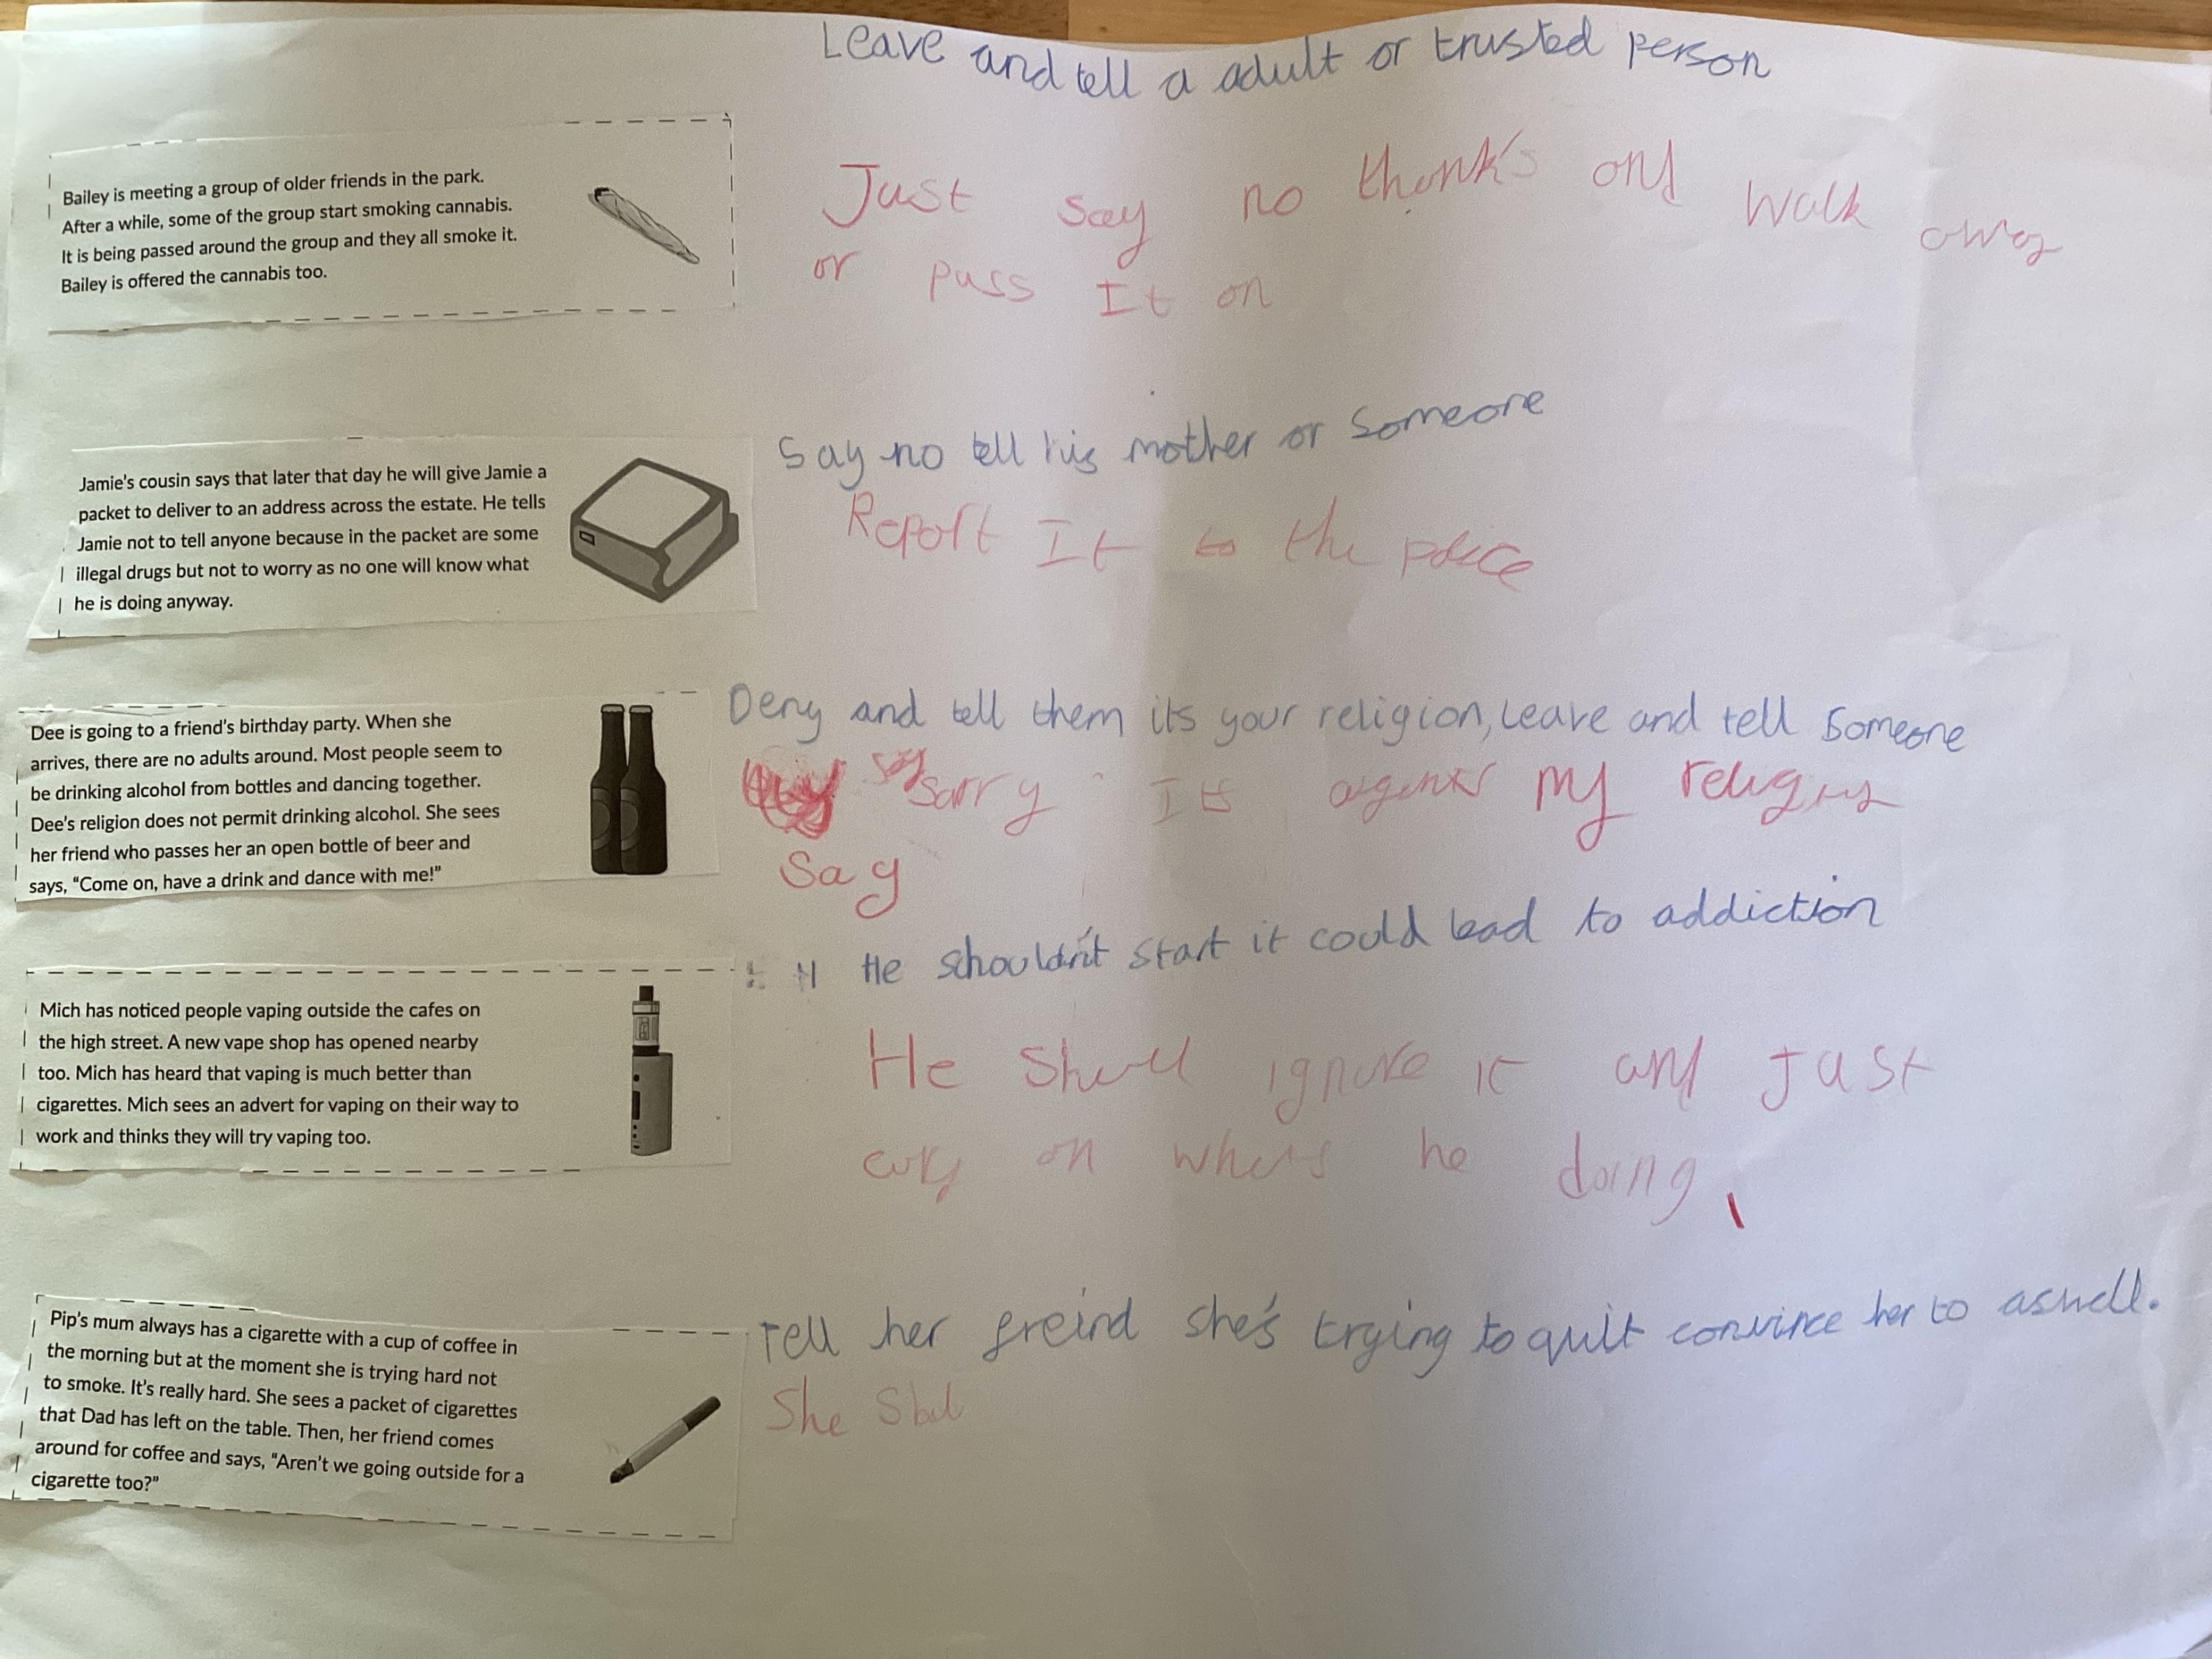 Leave and tell a adult or trusted person
Bailey is meeting a group of older friends in the park.
After a while, some of the group start smoking cannabis.
It is being passed around the group and they all smoke it.
Bailey is offered the cannabis too.
Just say no thanks and walk away
or pass It on
Say no tell his mother or someone
Jamie's cousin says that later that day he will give Jamie a
packet to deliver to an address across the estate. He tells
Jamie not to tell anyone because in the packet are some
illegal drugs but not to worry as no one will know what
he is doing anyway.
Report It to the police
Deny and tell them its your religion, leave and tell someone
Dee is going to a friend's birthday party. When she
arrives, there are no adults around. Most people seem to
be drinking alcohol from bottles and dancing together.
Dee's religion does not permit drinking alcohol. She sees
her friend who passes her an open bottle of beer and
says, "Come on, have a drink and dance with me!"
say sorry Its my
Say
He schouldn't start it could lead to addiction
Mich has noticed people vaping outside the cafes on
the high street. A new vape shop has opened nearby
too. Mich has heard that vaping is much better than
cigarettes. Mich sees an advert for vaping on their way to
work and thinks they will try vaping too.
He ignore it and Just
on he doing
Tell her freind she's trying to quit convince her to aswell.
Pip's mum always has a cigarette with a cup of coffee in
the morning but at the moment she is trying hard not
to smoke. It's really hard. She sees a packet of cigarettes
that Dad has left on the table. Then, her friend comes
around for coffee and says, "Aren't we going outside for a
cigarette too?"
She